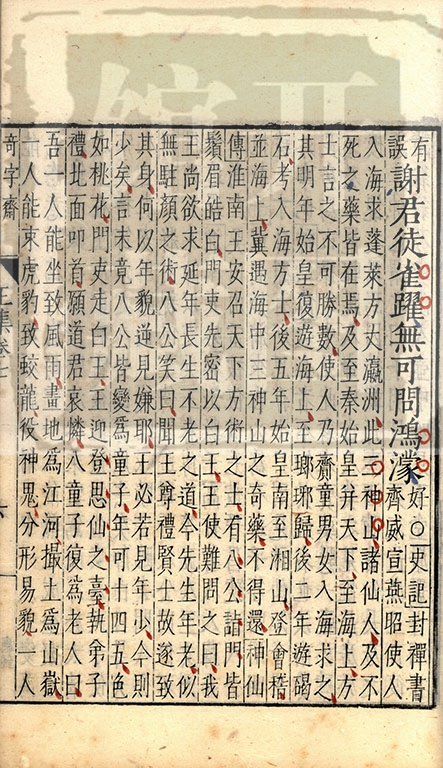 有
誤
謝君徒雀躍無可問鴻濛
好○史記封禪書
齊威宣燕昭使人
入海求蓬萊方丈瀛洲此三神山諸仙人及不
死之藥皆在焉及至秦始皇并天下至海上方
士言之不可勝數使人乃齎童男女入海求之
其明年始皇復遊海上至瑯琊歸後二年遊碣
石考入海方士後五年始皇南至湘山登會稽
並海上冀遇海中三神山之奇藥不得還神仙
傳淮南王安召天下方術之士有八公詣門皆
鬚眉皓白門吏先密以白王王使難問之曰我
王尚欲求延年長生不老之道今先生年老似
無駐顏之術八公笑曰聞王尊禮賢士故遂致
其身何以年貌逆見嫌耶王必若見年少今則
少矣言未竟八公皆變為童子年可十四五色
如桃花門吏走白王王迎登思仙之臺執弟子
禮北面叩首願道君哀憐八童子復為老人曰
吾一人能坐致風雨畫地為江河撮土為山嶽
一人能束虎豹致蛟龍役神鬼分形易貌一人
奇字齋